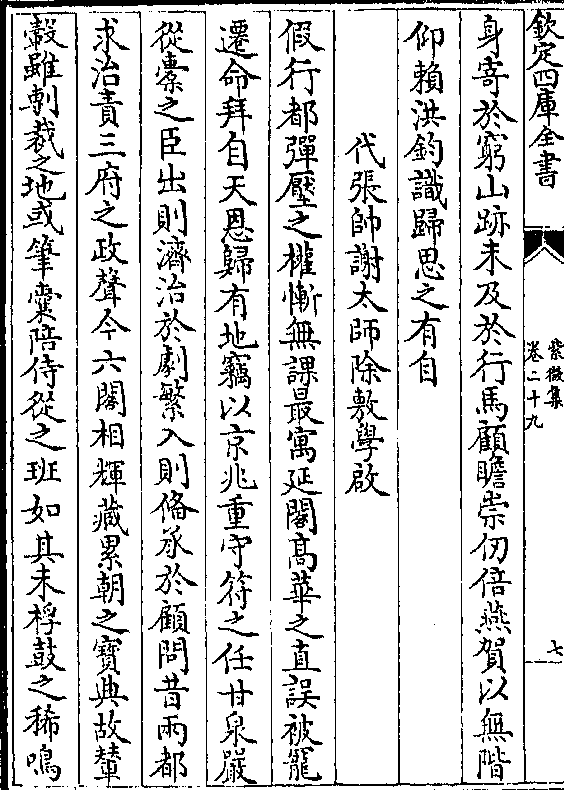 欽定四庫全書
紫微集
卷二十九
七
身寄於窮山跡未及於行馬顧瞻崇仞倍燕賀以無階
仰賴洪鈞識歸思之有自
代張帥謝太師除敷學啟
假行都彈壓之權慚無課最寓延閣髙華之直誤被寵
遷命拜自天恩歸有地竊以京兆重守符之任甘泉嚴
從橐之臣出則濟治於劇繁入則偹承於顧問昔兩都
求治責三府之政聲今六閣相輝藏累朝之寶典故輦
轂雖剸裁之地或筆橐陪侍從之班如其未桴鼓之稀鳴